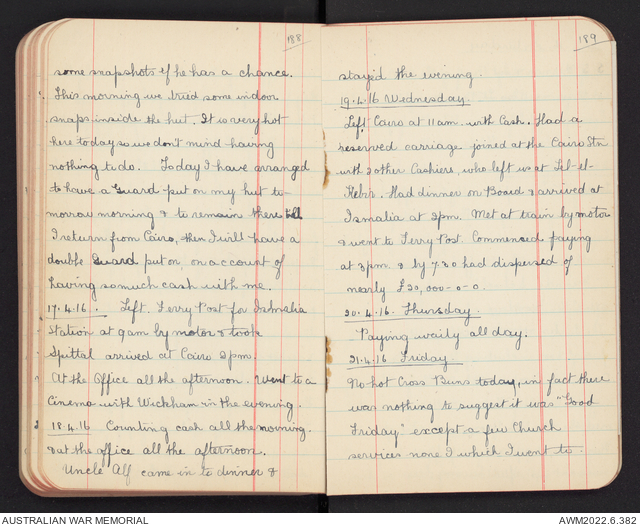 188
some snapshots if he has a chance.
This morning we tried some indoor
snaps inside the hut. It is very hot
here today so we don't mind having
nothing to do. Today I have arranged
to have a Guard put on my hut to-
morrow morning & to remains there till
I return from Cairo, then I will have a
double Guard put on on account of
having so much cash with me.
17.4.16. Left Ferry Post for Ismalia
Station at 9am by motor & took
Spittal arrived at Cairo 2pm.
At the Office all the afternoon. Went to a
Cinema with Wickham in the evening.
18.4.16 Counting cash all the morning.
& at the office all the afternoon.
Uncle Alf came in to dinner &
189
stayed the evening.
19.4.16 Wednesday
Left Cairo at 11am with Cash. Had a
reserved carriage joined at the Cairo Stn
with 2 other Cashiers, who left us at Tel-el-
Kebir. Had dinner on Board & arrived at
Ismalia at 2pm. Met at train by motor
& went to Ferry Post. Commenced paying
at 3pm. & by 7.30 had dispersed of
nearly £20,000-0-0.
20.4.16. Thursday.
Paying waily all day.
21.4.16 Friday.
No hot Cross Buns today, in fact there
was nothing to suggest it was "Good
Friday" except a few Church
services none I which I went to.
AUSTRALIAN WAR MEMORIAL
AWM2022.6.382